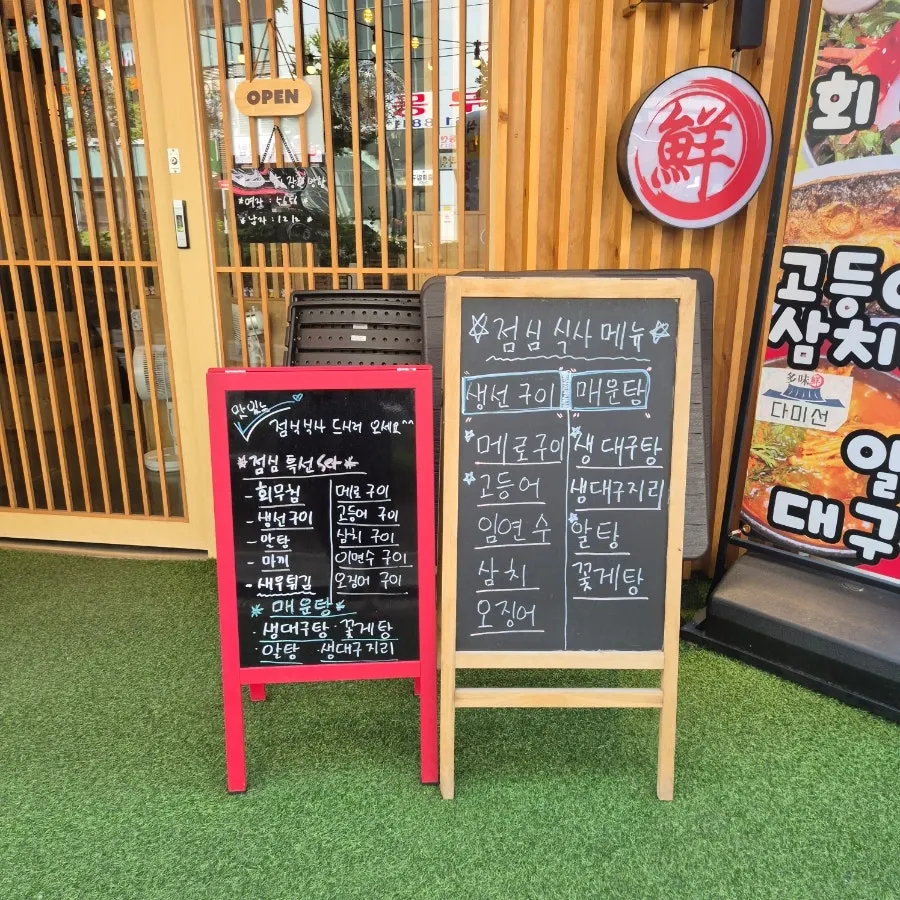 OPEN
여자 : 5656
남자 : 1212
鮮
회
고등어
삼치
多味鮮
다미선
알
대구
맛있는
점심식사 드시러 오세요^^
점심 특선 Set
- 회무침
- 생선구이
- 알탕
- 마끼
- 새우튀김
메로구이
고등어 구이
삼치 구이
이면수 구이
오징어 구이
매운탕
· 생대구탕 · 꽃게탕
· 알탕 · 생대구지리
점심 식사 메뉴
생선 구이
매운탕
메로구이
고등어
임연수
삼치
오징어
생대구탕
생대구지리
알탕
꽃게탕